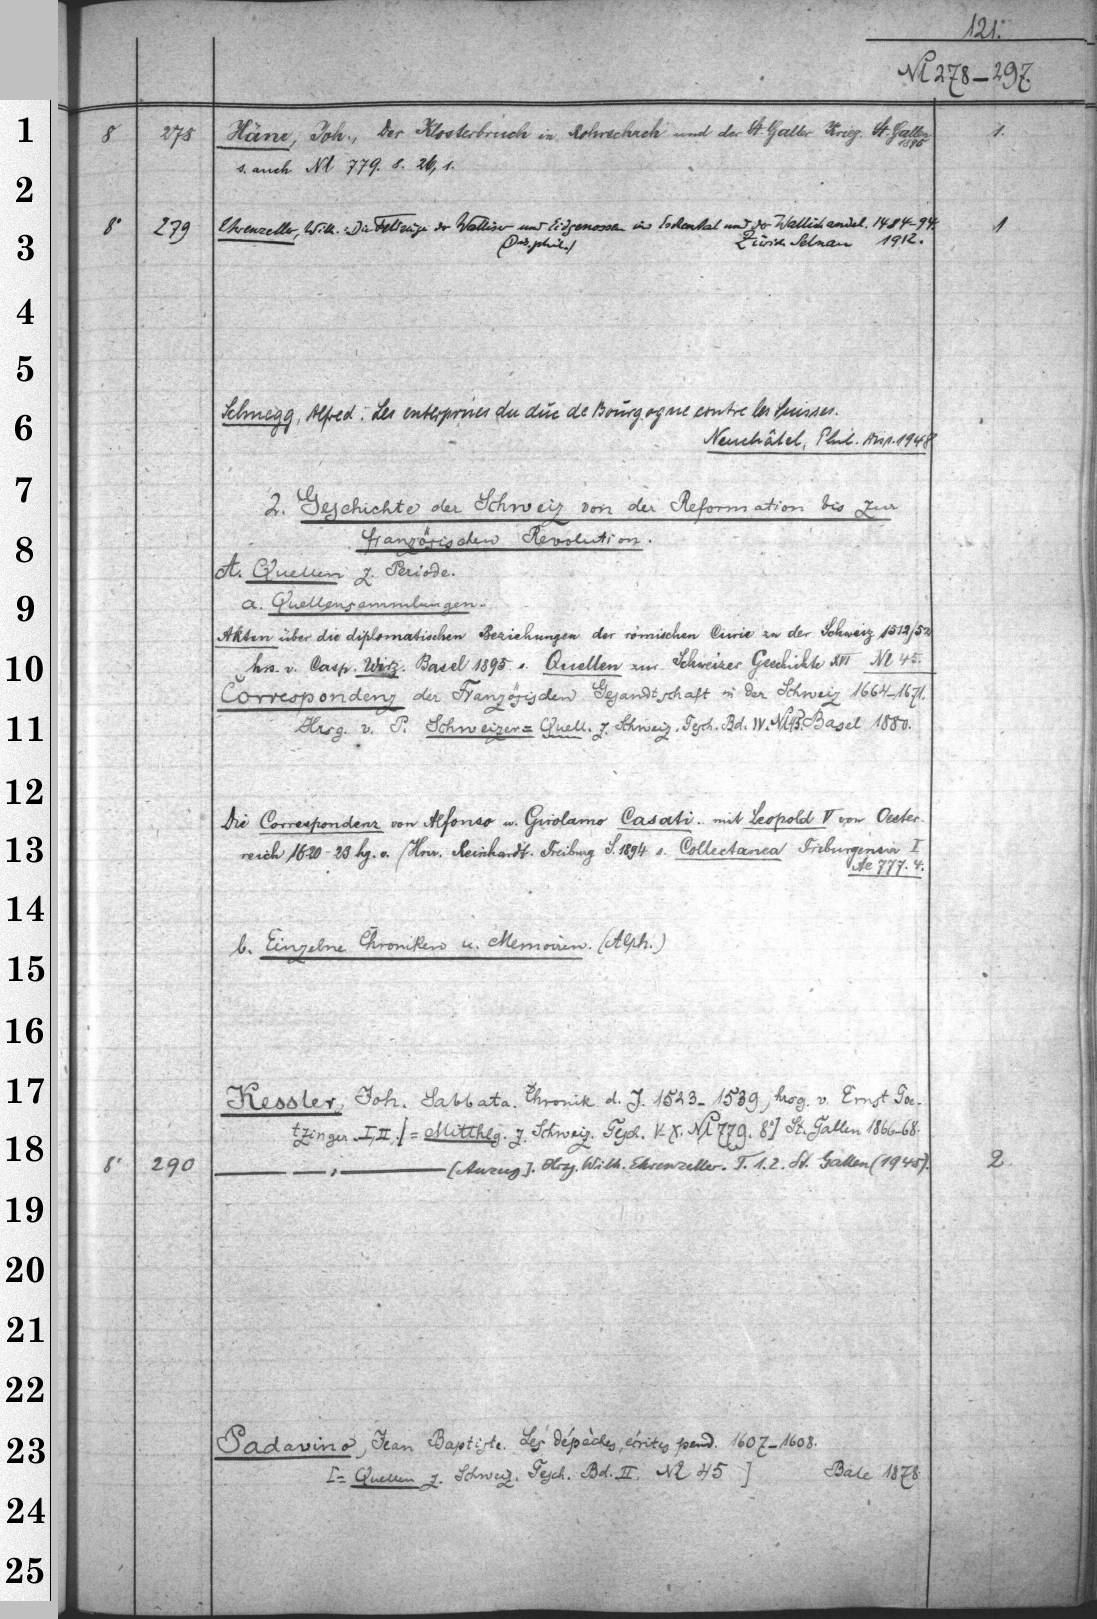 121.
Nl 278-297.
8 278 Häne, Joh., Der Klosterbruch in Rohrschach und der St. Galler Krieg. St. Gallen 1. 1895
s. auch Nl 779. 8. 26, 1.
8° 279 Ehrenzeller, Wilh.: Die Feldzüge der Walliser und Eidgenossen ins Eschental und der Wallishandel. 1484-94. 1
(Diss. phil.) Zürich-Selnau 1912.
Schnegg, Alfred. Les entreprises du duc de Bourgogne contre les Suisses.
Neuchâtel, Phil. Diss. 1948
2. Geschichte der Schweiz von der Reformation bis zur
französischen Revolution.
A. Quellen z. Periode.
a. Quellensammlungen.
Akten über die diplomatischen Beziehungen der römischen Curie zu der Schweiz 1512/52
hrs. v. Casp. Wirz. Basel 1895 s. Quellen zur Schweizer Geschichte XVI Nl 45.
Correspondenz der Französischen Gesandtschaft in der Schweiz 1664-1671.
Hrsg. v. P. Schweizer = Quell. z. Schweiz. Gesch. Bd. IV. Nl 45. Basel 1880.
Die Correspondenz von Alfonso u. Girolamo Casati.. mit Leopold V von Oester-
reich 1620-23 hg. v. Reinhardt. Freiburg S. 1894 s. Collectanea Friburgensia I
Ae 777. 4.
b. Einzelne Chroniken u. Memoiren. (Alph.)
Kessler, Joh. Sabbata. Chronik d. J. 1523-1539, hrsg. v. Ernst Goe-
tzinger. I, II. [= Mitthlg. z. Schweiz. Gesch. V. X. Nl 779. 8°] St. Gallen 1866-68.
8° 290 ——— — , ——— [Auszug]. Hrsg. Wilh. Ehrenzeller. T. 1. 2. St. Gallen (1945). 2
Padavino, Jean Baptiste. Les dépêches, écrites pend. 1607-1608.
[= Quellen z. Schweiz. Gesch. Bd. II. Nl 45 ] Bâle 1878
1
2
3
4
5
6
7
8
9
10
11
12
13
14
15
16
17
18
19
20
21
22
23
24
25